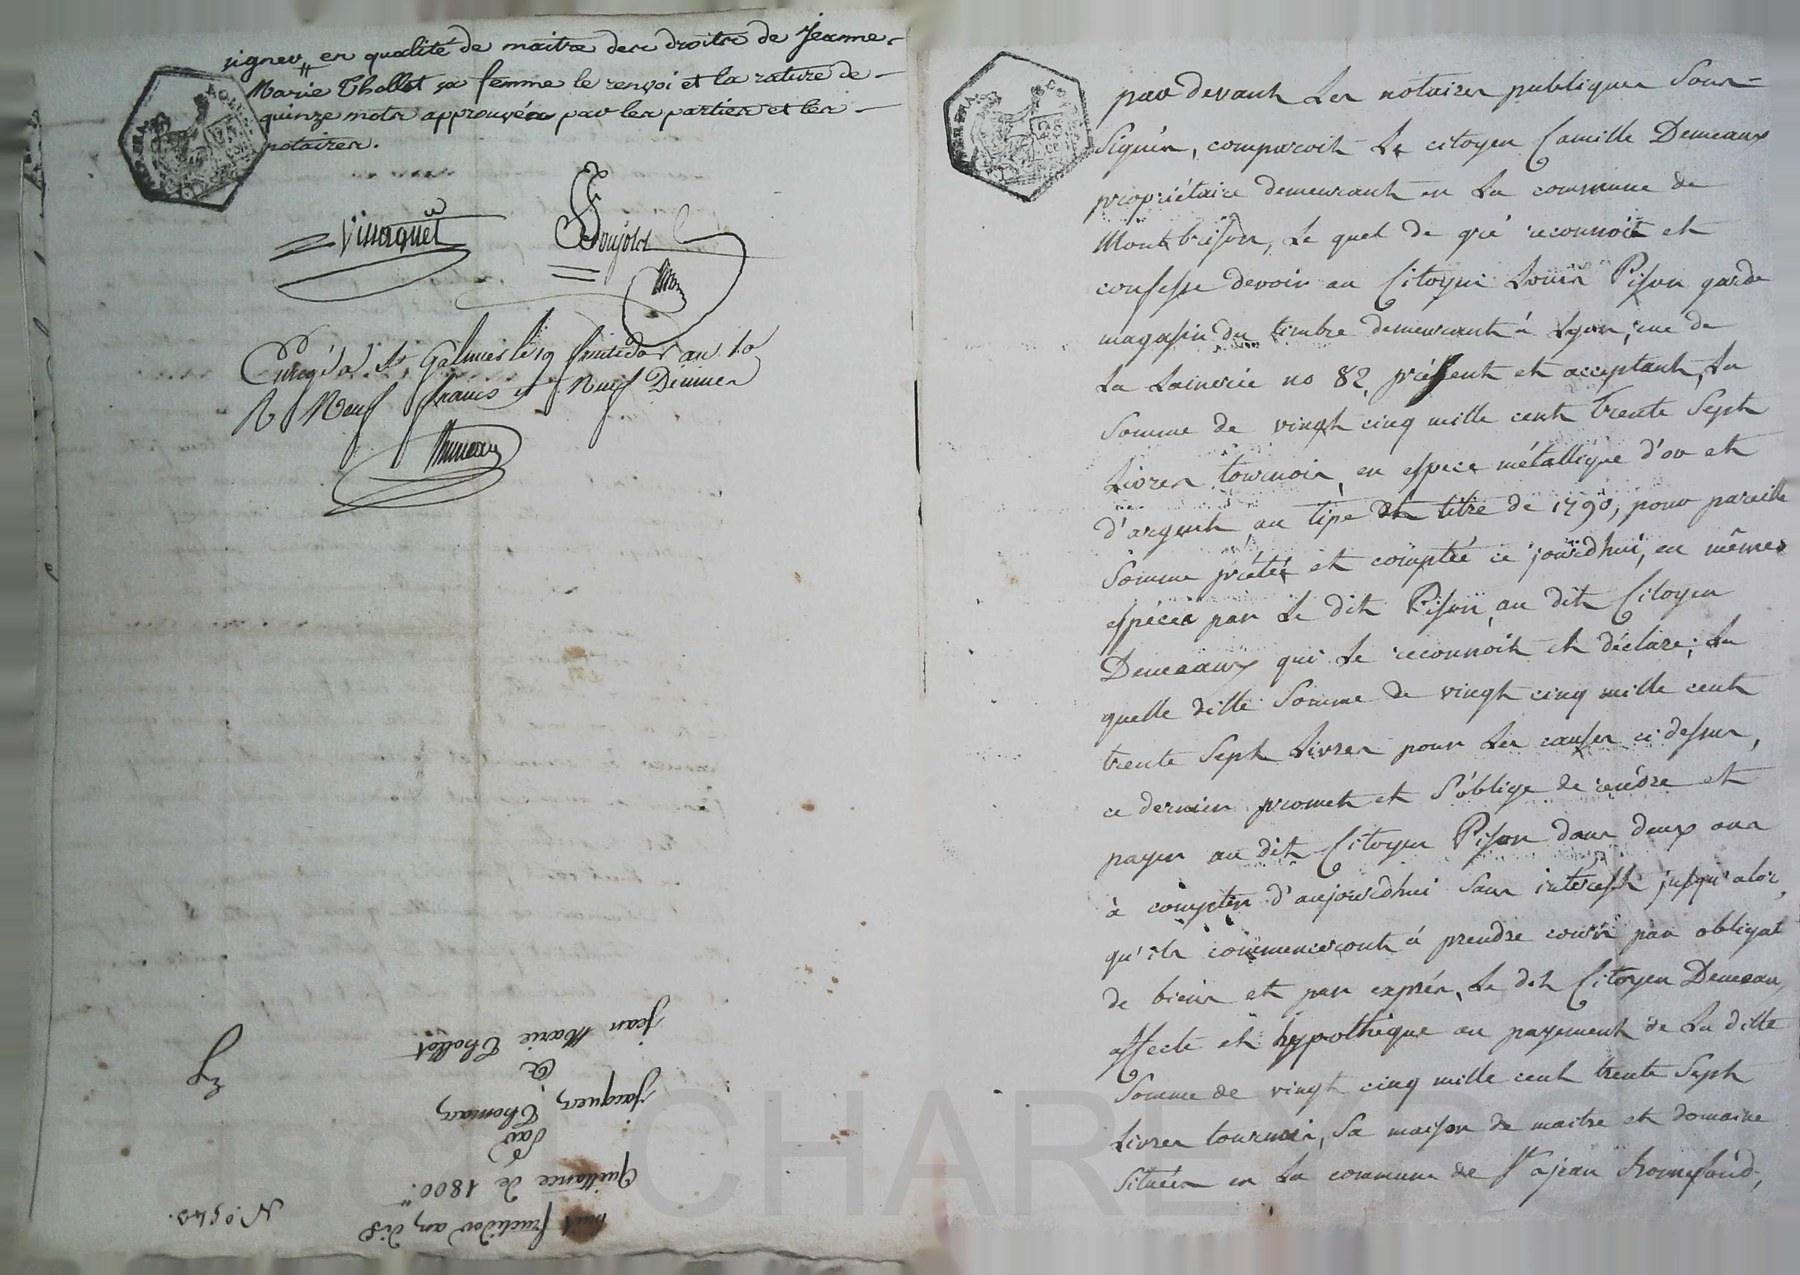 signer en qualité de maitre des droits de Jeanne
Marie Thollot sa femme le renvoi et la rature de
quinze mots approuvés par les parties et les
notaires.
Goujold
Enreg. à St. Galmier le 19 fructidor an 10
R Neuf francs et Neuf Dixmes
jean Marie Thollot
a
jacques Thomas
Par
Quittance de 1800.₶
huit fructidor an dis
N.o 543.
par devant Les notaires publiques Sous-
Signés, comparoit Le citoyen Camille Demeaux
propriétaire demeurant en La commune de
Montbrison, Le quel de gré reconnoit et
confesse devoir au Citoyen Louis Pison garde
magasin du timbre demeurant à Lyon, rue de
La Lainerie no 82, présent et acceptant, La
Somme de vingt cinq mille cent trente Sept
Livres tournois, en espece métallique d'or et
d'argent, au tipe et titre de 1790, pour pareille
Somme prétée et comptée ce jourdhui, en mêmes
espéces par Le dit Pison, au dit Citoyen
Demeaux qui Le reconnoit et déclare; La
quelle ditte Somme de vingt cinq mille cent
trente Sept Livres pour Les causes ci dessus,
ce dernier promet et S'oblige de rendre et
payer au dit Citoyen Pison dans deux ans
à compter d'aujourdhui Sans interest jusqu'alor,
qu'ils commenceront à prendre cours par obligat
de biens et par exprés, Le dit Citoyen Demeaux
affecte et hypothéque au payement de La ditte
Somme de vingt cinq mille cent trente Sept
Livres tournois, Sa maison de maitre et domaine
Situés en La commune de St ajean Bonnefond,
CHAREYRON